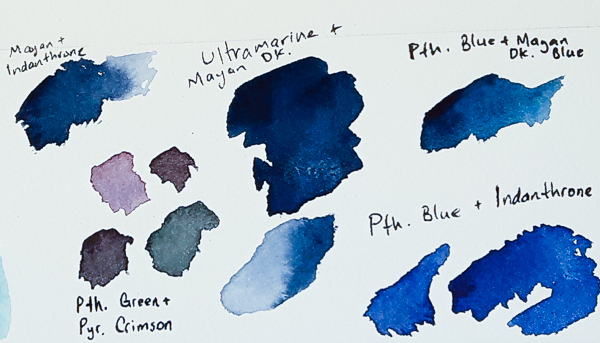 Mayan +
Indanthrone
Ultramarine +
Mayan DK.
Pth. Blue + Mayan
DK. Blue
Pth. Blue + Indanthrone
Pth. Green +
Pyr. Crimson